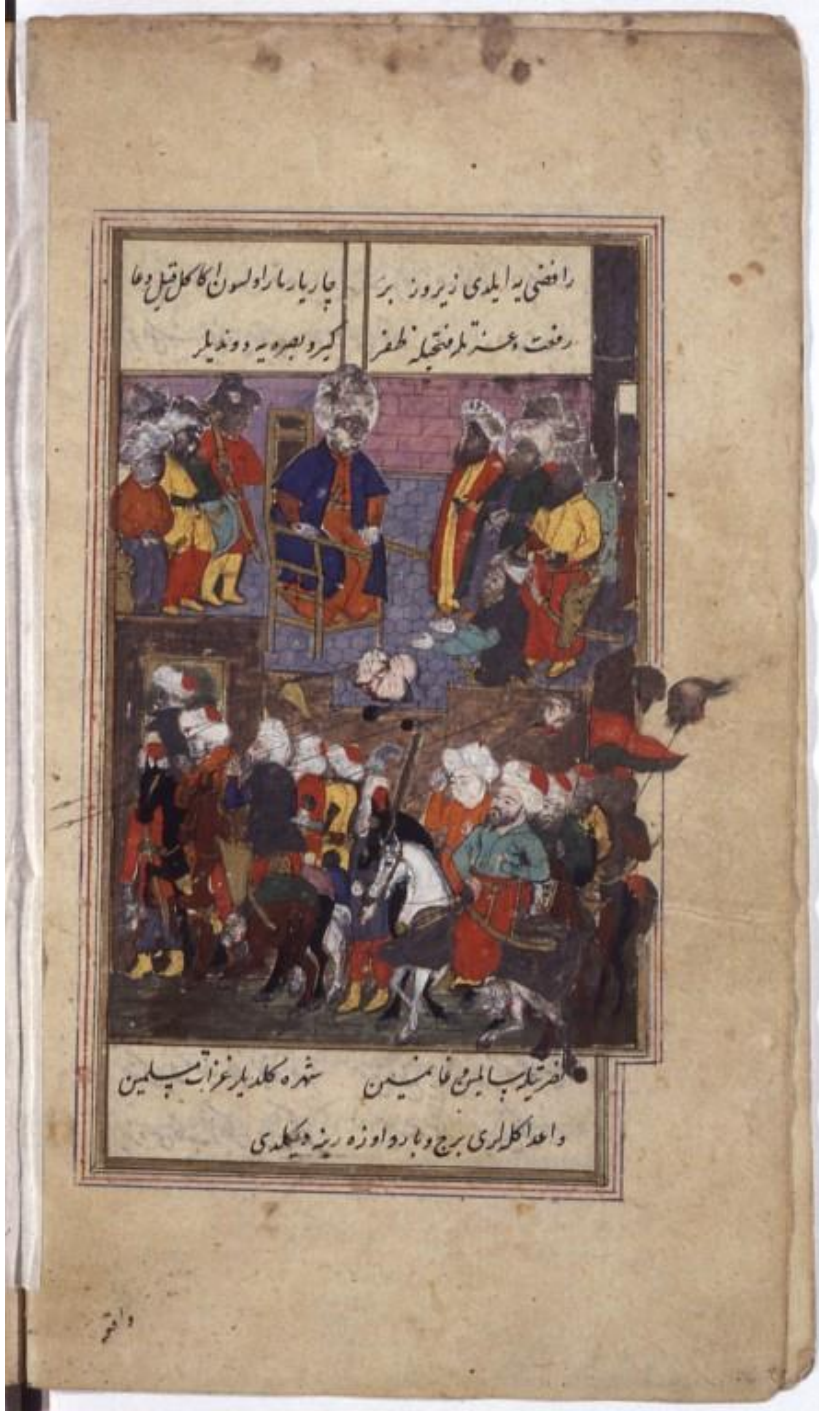 رافضی یه ایلدی زیر و زبر چاریار یار اولسون اکا کل قیل دعا
رفعت و عزتله فتحیله ظفر کیرو بصره یه دوندیلر
نصرتیله سالمین و غانمین شهره کلدیلر غزات مسلمین
و اعدا کله لری برج و بارو اوزه رینه دیکلدی